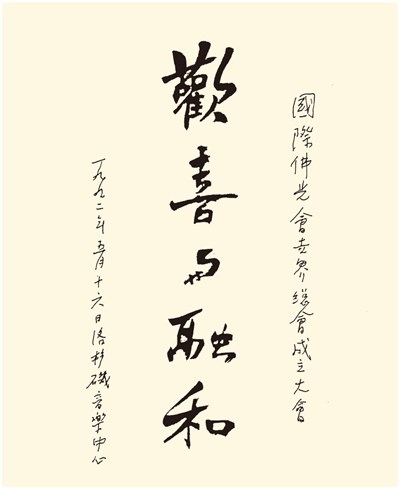 國際佛光會世界總會成立大會
歡喜与融和
一九九二年五月十六日洛杉磯音樂中心